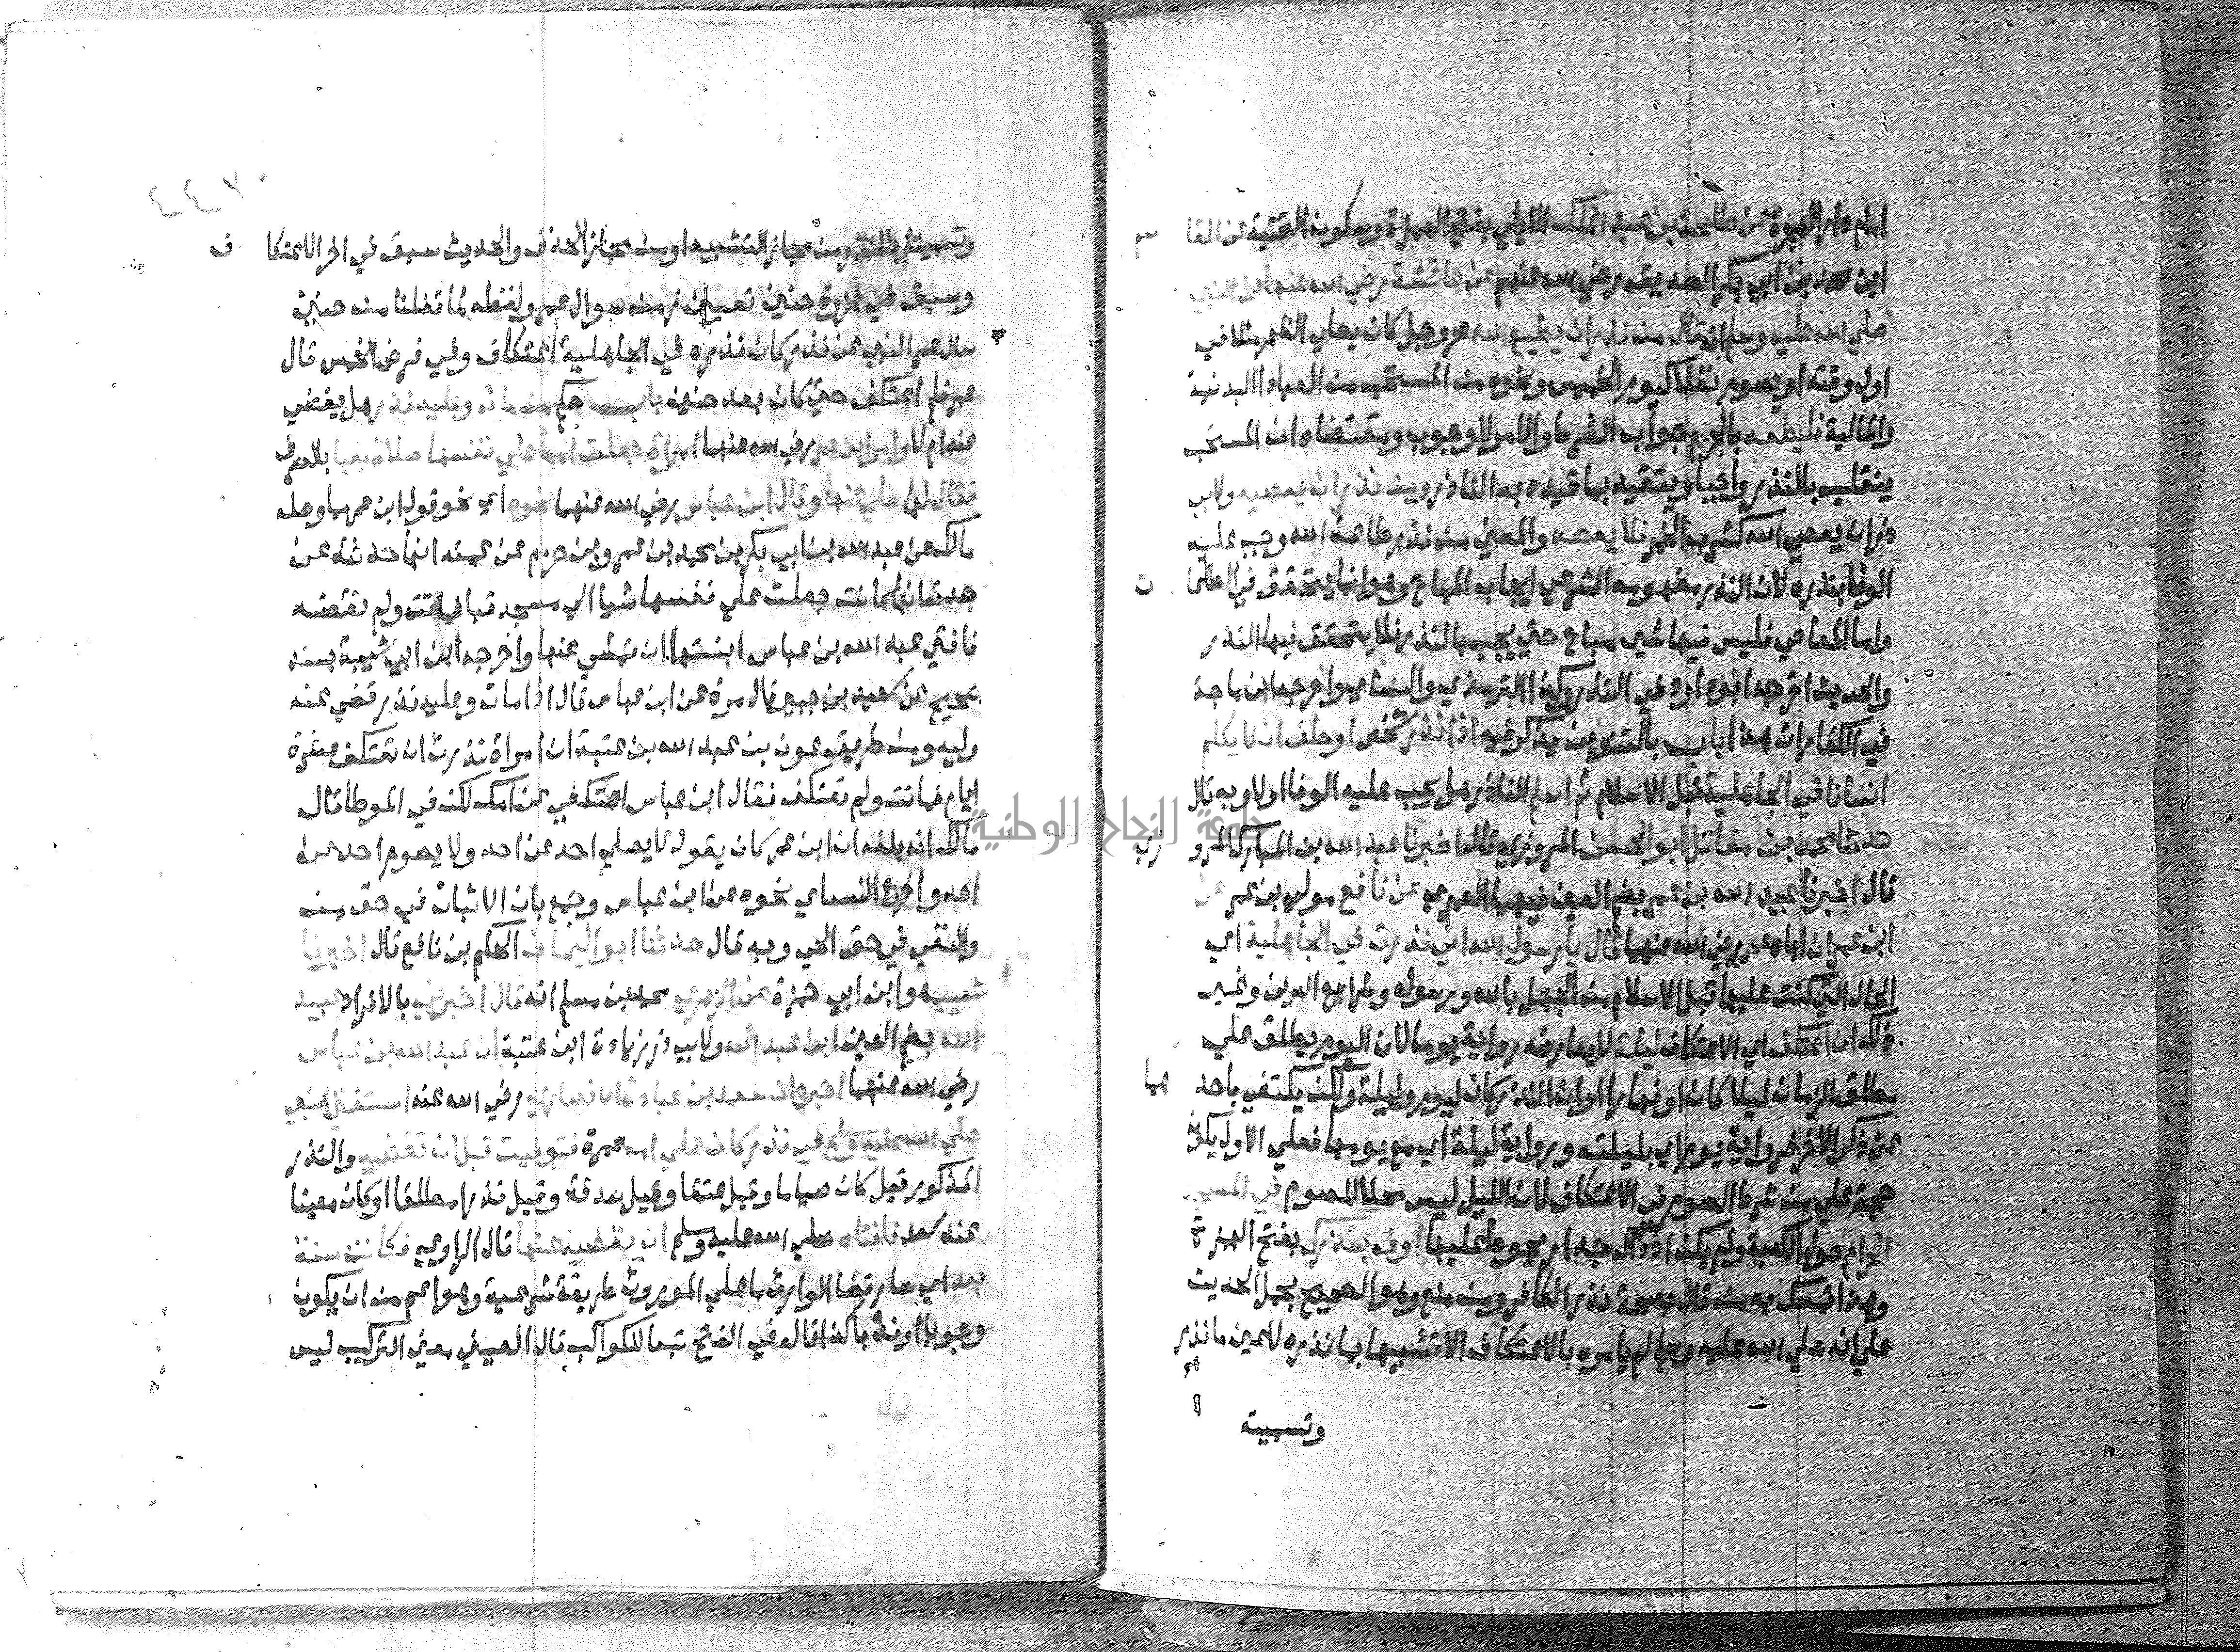 امام دار الهجرة عن طلحة بن عبد الملك الايلي بفتح الهمزة وسكون التحتية عن القا سم
ابن محمد بن ابي بكر الصديق رضي الله عنهم عن عائشة رضي الله عنها عن النبي
صلي الله عليه وسلم انه قال من نذر ان يطيع الله عز وجل كان يصلي الظهر مثلا في
اول وقته او يصوم نفلا كيوم الخميس ونحوه من المستحب من العبادا البدنية
والمالية فليطعه بالجزم جواب الشرط والامر للوجوب ومقتضاه ان المستحب
ينقلب بالنذر واجبا ويتقيد بما قيده به الناذر ومن نذر ان يعصيه ولابي
ذر ان يعصي الله كشرب الخمر فلا يعصه والمعني من نذر طاعة الله وجب عليه
الوفا بنذره لان النذر مفهومه الشرعي ايجاب المباح وهو انما يتحقق في الطاعا ت
واما المعاصي فليس فيها شي مباح حتي يجب بالنذر فلا يتحقق فيها النذر
والحديث اخرجه ابو داود في النذر وكذا الترمذي والنساي واخرجه ابن ماجة
في الكفارات هذا باب بالتنوين يذكر فيه اذا نذر شخص او حلف ان لا يكلم
انسانا في الجاهلية قبل الاسلام ثم اسلم الناذر هل يجب عليه الوفا اولا وبه قال
حدثنا محمد بن مقاتل ابو الحسن المروزي قال اخبرنا عبد الله بن المبارك المرو زي
قال اخبرنا عبيد الله بن عمر بضم العين فيهما العمري عن نافع مولي بن عمر عن
ابن عمر ان اباه عمر رضي الله عنهما قال يا رسول الله اني نذرت في الجاهلية اي
الحال التي كنت عليها قبل الاسلام من الجهل بالله ورسوله وشرايع الدين وغير
ذلك ان اعتكف اي الاعتكاف ليلة لا يعارضه رواية يوما لان اليوم يطلق علي
مطلق الزمان ليلا كان او نهارا او ان النذر كان ليوم وليلة ولكن يكتفي باحد هما
عن ذكر الاخر فرواية يوم اي بليلته ورواية ليلة اي مع يومها فعلي الاول يكون
حجة علي من شرط الصوم في الاعتكاف لان الليل ليس محلا للصوم في المسجد
الحرام حول الكعبة ولم يكن اذ ذاك جدار يحوط عليها اوف بنذرك بفتح الهمزة
وهذا تمسك به من قال بصحة نذر الكافر ومن منع وهو الصحيح يحمل الحديث
علي انه صلي الله عليه وسلم لم يامره بالاعتكاف الا تشبيها بما نذره لا عين ما نذر
وتسميته
وتسميته بالنذر من مجاز التشبيه او من مجاز الحذف والحديث سبق في اخر الاعتكا ف
وسبق في غزوة حنين تعيين زمن سوال عمر ولفظه لما قفلنا من حنين
سال عمر النبي عن نذر كان نذره في الجاهلية اعتكاف وفي فرض الخمس قال
عمر فلم اعتكف حتي كان بعد حنين باب حكم من مات وعليه نذر هل يقضي
عنه ام لا وامر ابن عمر رضي الله عنهما امراة جعلت امها علي نفسها صلاة بقبا بالصرف
فقال لها صلي عنها وقال ابن عباس رضي الله عنهما نحوه اي نحو قول ابن عمر مما وصله
مالك عن عبد الله بن ابي بكر بن محمد بن عمرو بن حزم عن عمته انها حدثته عن
جدته انها كانت جعلت علي نفسها شيا الي مسجد قبا فماتت ولم تقضه
فافتي عبد الله بن عباس ابنتها ان تمشي عنها واخرجه ابن ابي شيبة بسند
صحيح عن سعيد بن جبير قال مرة عن ابن عباس قال اذا مات وعليه نذر قضي عنه
وليه ومن طريق عون بن عبد الله بن عتبة ان امراة نذرت ان تعتكف عشرة
ايام فماتت ولم تعتكف فقال ابن عباس اعتكفي عن امك لكن في الموطا قال
مالك انه بلغه ان ابن عمر كان يقول لا يصلي احد عن احد ولا يصوم احد عن
احد واخرج النساي نحوه عن ابن عباس وجمع بان الاثبات في حق من
والنفي في حق الحي وبه قال حدثنا ابو اليمان الحكم بن نافع قال اخبرنا
شعيب هو ابن ابي حمزة عن الزهري محمد بن مسلم انه قال اخبرني بالافراد عبيد
الله بضم العين ابن عبد الله ولابي ذر زيادة ابن عتبة ان عبد الله بن عباس
رضي الله عنهما اخبره ان سعد بن عبادة الانصاري رضي الله عنه استفتي النبي
صلي الله عليه وسلم في نذر كان علي امه عمرة فتوفيت قبل ان تقضيه والنذر
المذكور قيل كان صياما وقيل عتقا وقيل صدقة وقيل نذرا مطلقا او كان معينا
عند سعد فافتاه صلي الله عليه وسلم ان يقضيه عنها قال الراوي فكانت سنة
بعد اي صار قضا الوارث ما علي الموروث طريقة شرعية وهو اعم من ان يكون
وجوبا او ندبا كذا قاله في الفتح تبعا للكواكب قال العيني معني التركيب ليس